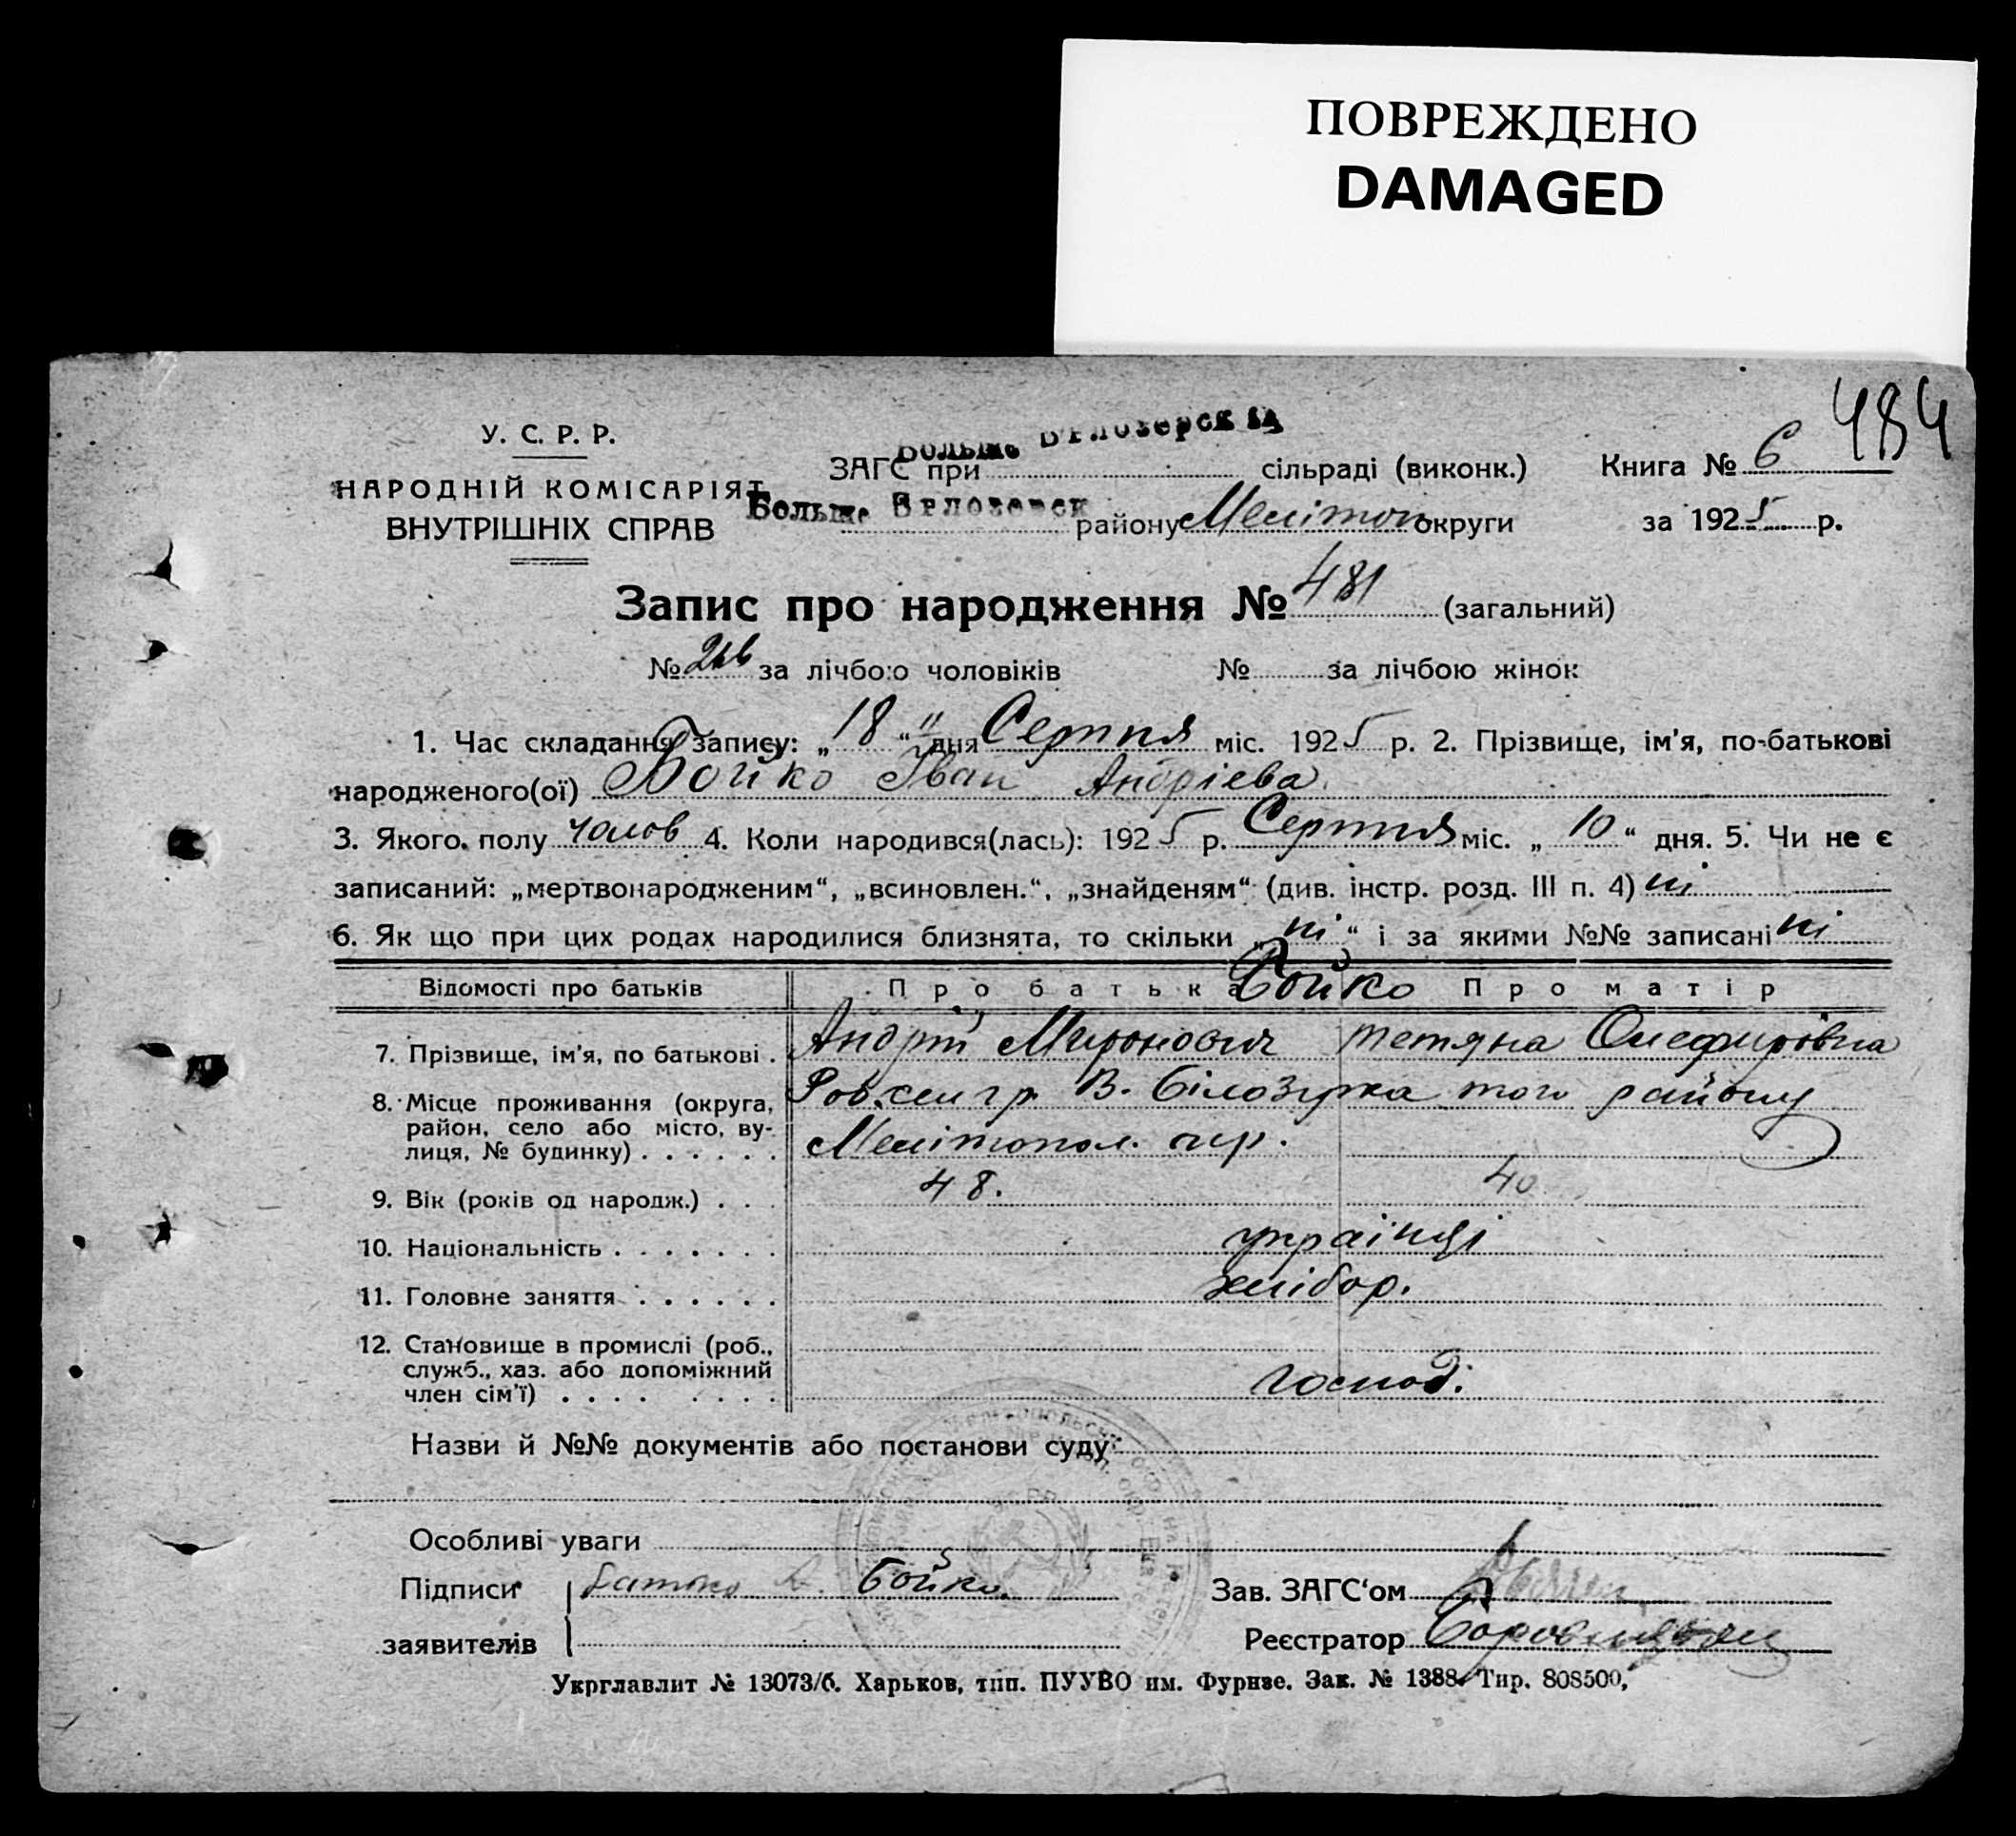 ПОВРЕЖДЕНО
DAMAGED
484
У. С. Р. Р.
НАРОДНІЙ КОМІСАРІЯТ
ВНУТРІШНІХ СПРАВ
ЗАГС при Больше Белозерск сільраді (виконк.) Книга № 6
Больше Белозерск району Мелітоп округи за 1925 р.
Запис про народження № 481 (загальний)
№ за лічбою чоловіків № за лічбою жінок
1. Час складання запису: „18“ дня Серпня міс. 1925 р. 2. Прізвище, ім'я, по-батькові
народженого(ої) Бойко Іван Андрієва
3. Якого полу чолов 4. Коли народився(лась): 1925 р. Серпня міс. „10“ дня. 5. Чи не є
записаний: „мертвонародженим“, „всиновлен.“, „знайденям“ (див. інстр. розд. III п. 4) ні
6. Як що при цих родах народилися близнята, то скільки „ні“ і за якими №№ записані ні
Відомості про батьків Про батька Бойко Про матір
7. Прізвище, ім'я, по батькові . Андрій Миронович Тетяна Олефирівна
8. Місце проживання (округа, В. Білозірка того району
район, село або місто, ву-
лиця, № будинку) . . . . . . Мелітопол. окр.
9. Вік (років од народж.) . . . 48. 40
10. Національність . . . . . . . українці
11. Головне заняття . . . . . . хлібор.
12. Становище в промислі (роб.,
служб., хаз. або допоміжний
член сім'ї) . . . . . . . . господ.
Назви й №№ документів або постанови суду:
Особливі уваги
Підписи батько А. Бойко. Зав. ЗАГС'ом
заявителів Реєстратор
Укрглавлит № 13073/б. Харьков, тип. ПУУВО им. Фурнзе. Зак. № 1388. Тир. 808500.